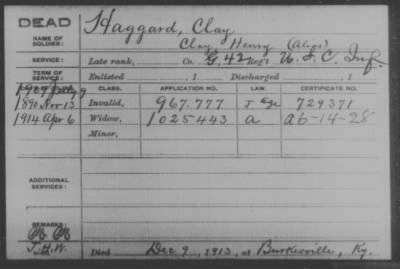 DEAD
Haggard, Clay
NAME OF
SOLDIER:
Clay, Henry (Alias)
SERVICE:
Late rank, Co. G, 42 Reg't U.S.C. Inf.
TERM OF
SERVICE:
Enlisted , 1 Discharged , 1
CLASS. APPLICATION NO. LAW. CERTIFICATE NO.
1890 Nov 13 Invalid, 967.777 J 729371
1914 Apr 6 Widow, 1025443 a ab-14-28
Minor,
ADDITIONAL
SERVICES:
REMARKS:
J.H.W. Died Dec 9, 1913, at Burkesville, Ky.